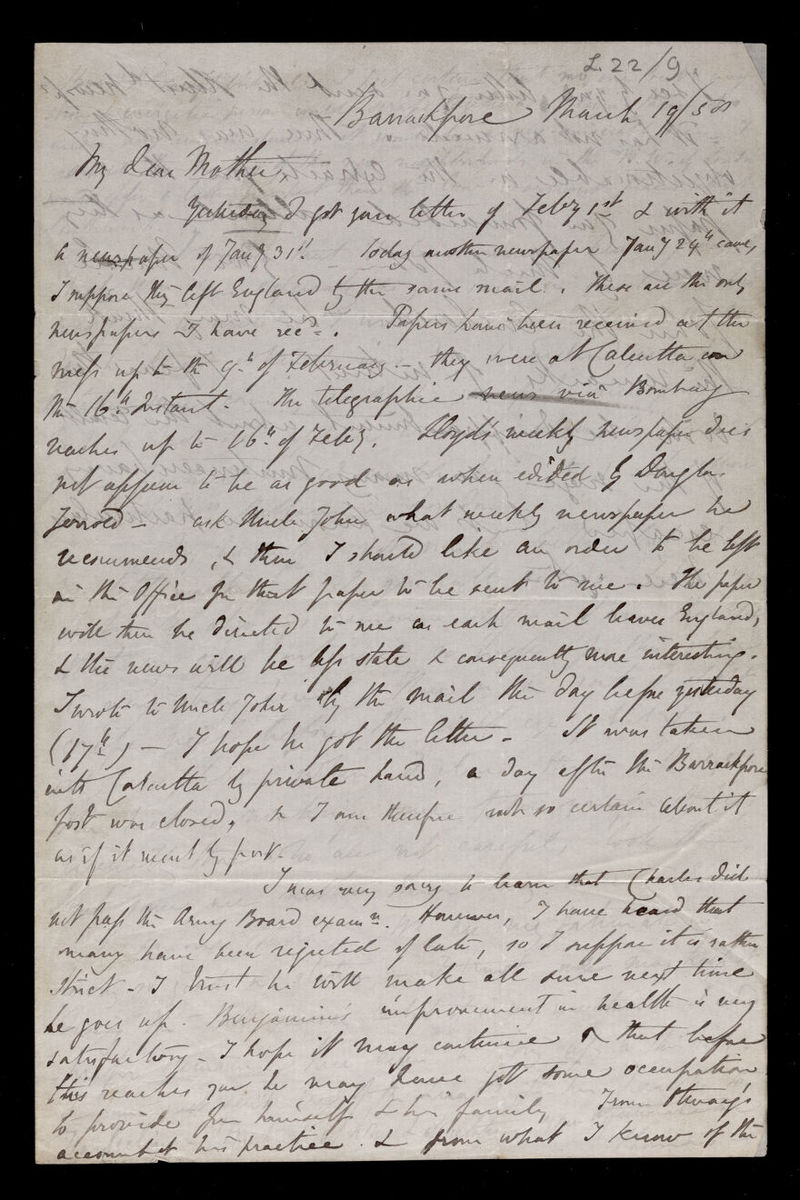 L 22/9
Barrackpore March 19/58
My dear Mother,
Yesterday I got your letter of Feby 1st & with it
a newspaper of Jany 31st. Today another newspaper Jany 24th came,
I suppose they left England by the same mail. These are the only
newspapers I have recd. Papers have been received at the
mess up to the 9th of February — they were at Calcutta on
the 16th Instant. The telegraphic news via Bombay
reaches up to 16th of Feby. Lloyd's weekly newspaper does
not appear to be as good as when edited by Douglas
Jerrold — ask Uncle John what weekly newspaper he
recommends, & then I should like an order to be left
in the Office for that paper to be sent to me. The paper
will then be directed to me as each mail leaves England,
& the news will be less stale & consequently more interesting.
I wrote to Uncle John by the mail the day before yesterday
(17th) — I hope he got the letter — It was taken
into Calcutta by private hand, a day after the Barrackpore
post was closed, & I am therefore not so certain about it
as if it went by post.
I was very sorry to learn that Charles did
not pass the Army Board examn. However, I have heard that
many have been rejected of late, so I suppose it is rather
strict — I trust he will make all sure next time
he goes up. Benjamin's improvement in health is very
satisfactory — I hope it may continue & that before
this reaches you he may have got some occupation
to provide for himself & his family. From Otway's
account of his practice & from what I know of the